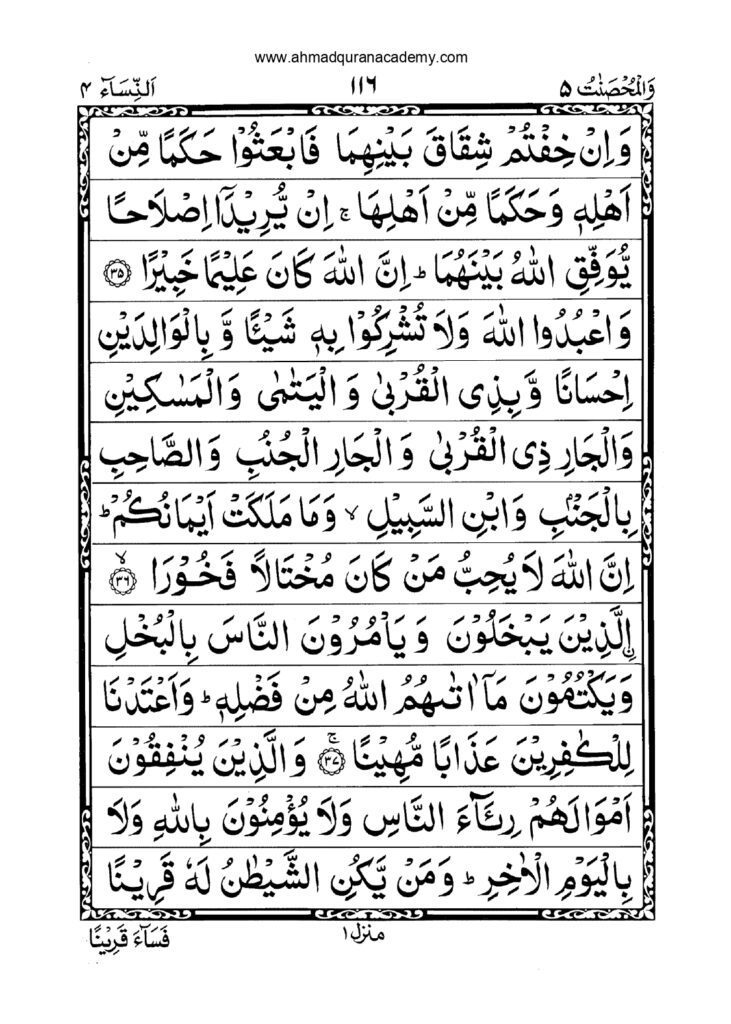 www.ahmadquranacademy.com
وَالْمُحْصَنٰتُ ۵
۱۱۶
اَلنِّسَآء ۴
وَاِنْ خِفْتُمْ شِقَاقَ بَيْنِهِمَا فَابْعَثُوْا حَكَمًا مِّنْ
اَهْلِهٖ وَحَكَمًا مِّنْ اَهْلِهَا ۚ اِنْ يُّرِيْدَاۤ اِصْلَاحًا
يُّوَفِّقِ اللّٰهُ بَيْنَهُمَا ؕ اِنَّ اللّٰهَ كَانَ عَلِيْمًا خَبِيْرًا ۳۵
وَاعْبُدُوا اللّٰهَ وَلَا تُشْرِكُوْا بِهٖ شَيْـًٔا وَّ بِالْوَالِدَيْنِ
اِحْسَانًا وَّبِذِى الْقُرْبٰى وَالْيَتٰمٰى وَالْمَسٰكِيْنِ
وَالْجَارِ ذِى الْقُرْبٰى وَالْجَارِ الْجُنُبِ وَالصَّاحِبِ
بِالْجَنْۢبِ وَابْنِ السَّبِيْلِ ۙ وَمَا مَلَكَتْ اَيْمَانُكُمْ ؕ
اِنَّ اللّٰهَ لَا يُحِبُّ مَنْ كَانَ مُخْتَالًا فَخُوْرَا ۙ ۳۶
اۨلَّذِيْنَ يَبْخَلُوْنَ وَيَاْمُرُوْنَ النَّاسَ بِالْبُخْلِ
وَيَكْتُمُوْنَ مَاۤ اٰتٰٮهُمُ اللّٰهُ مِنْ فَضْلِهٖ ؕ وَاَعْتَدْنَا
لِلْكٰفِرِيْنَ عَذَابًا مُّهِيْنًا ۚ ۳۷ وَالَّذِيْنَ يُنْفِقُوْنَ
اَمْوَالَهُمْ رِئَآءَ النَّاسِ وَلَا يُؤْمِنُوْنَ بِاللّٰهِ وَلَا
بِالْيَوْمِ الْاٰخِرِ ؕ وَمَنْ يَّكُنِ الشَّيْطٰنُ لَهٗ قَرِيْنًا
منزل ۱
فَسَآءَ قَرِيْنًا